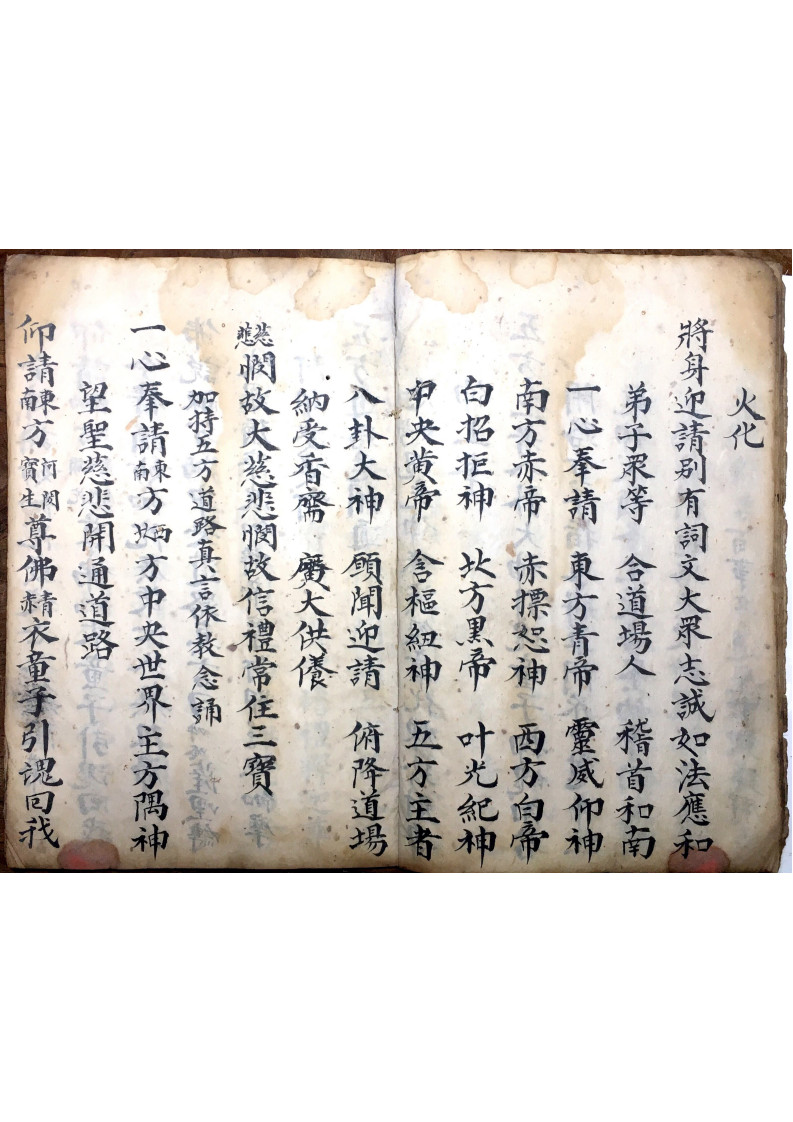 火化
將身迎請別有詞文大眾志誠如法應和
弟子眾等 合道場人 稽首和南
一心奉請 東方青帝 靈威仰神
南方赤帝 赤摽怒神 西方白帝
白招拒神 北方黑帝 叶光紀神
中央黃帝 含樞紐神 五方主者
八卦大神 願聞迎請 俯降道場
納受香齋 廣大供養
慈悲憫故大慈悲憫故信禮常住三寶
加持五方道路真言依教念誦
一心奉請東南方西北方中央世界主方隅神
望聖慈悲開通道路
仰請東南方阿閦寶生尊佛青赤衣童子引魂回我